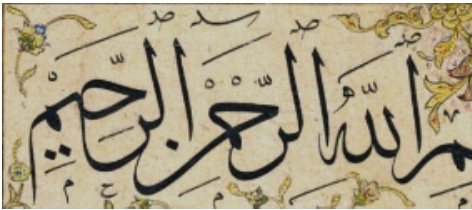 م الله الرحمن الرحيم